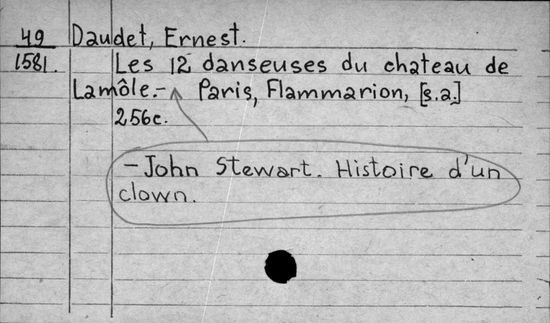 49 Daudet, Ernest.
1581. Les 12 danseuses du chateau de
Lamôle.- Paris, Flammarion, [s.a.]
256c.
- John Stewart. Histoire d'un
clown.